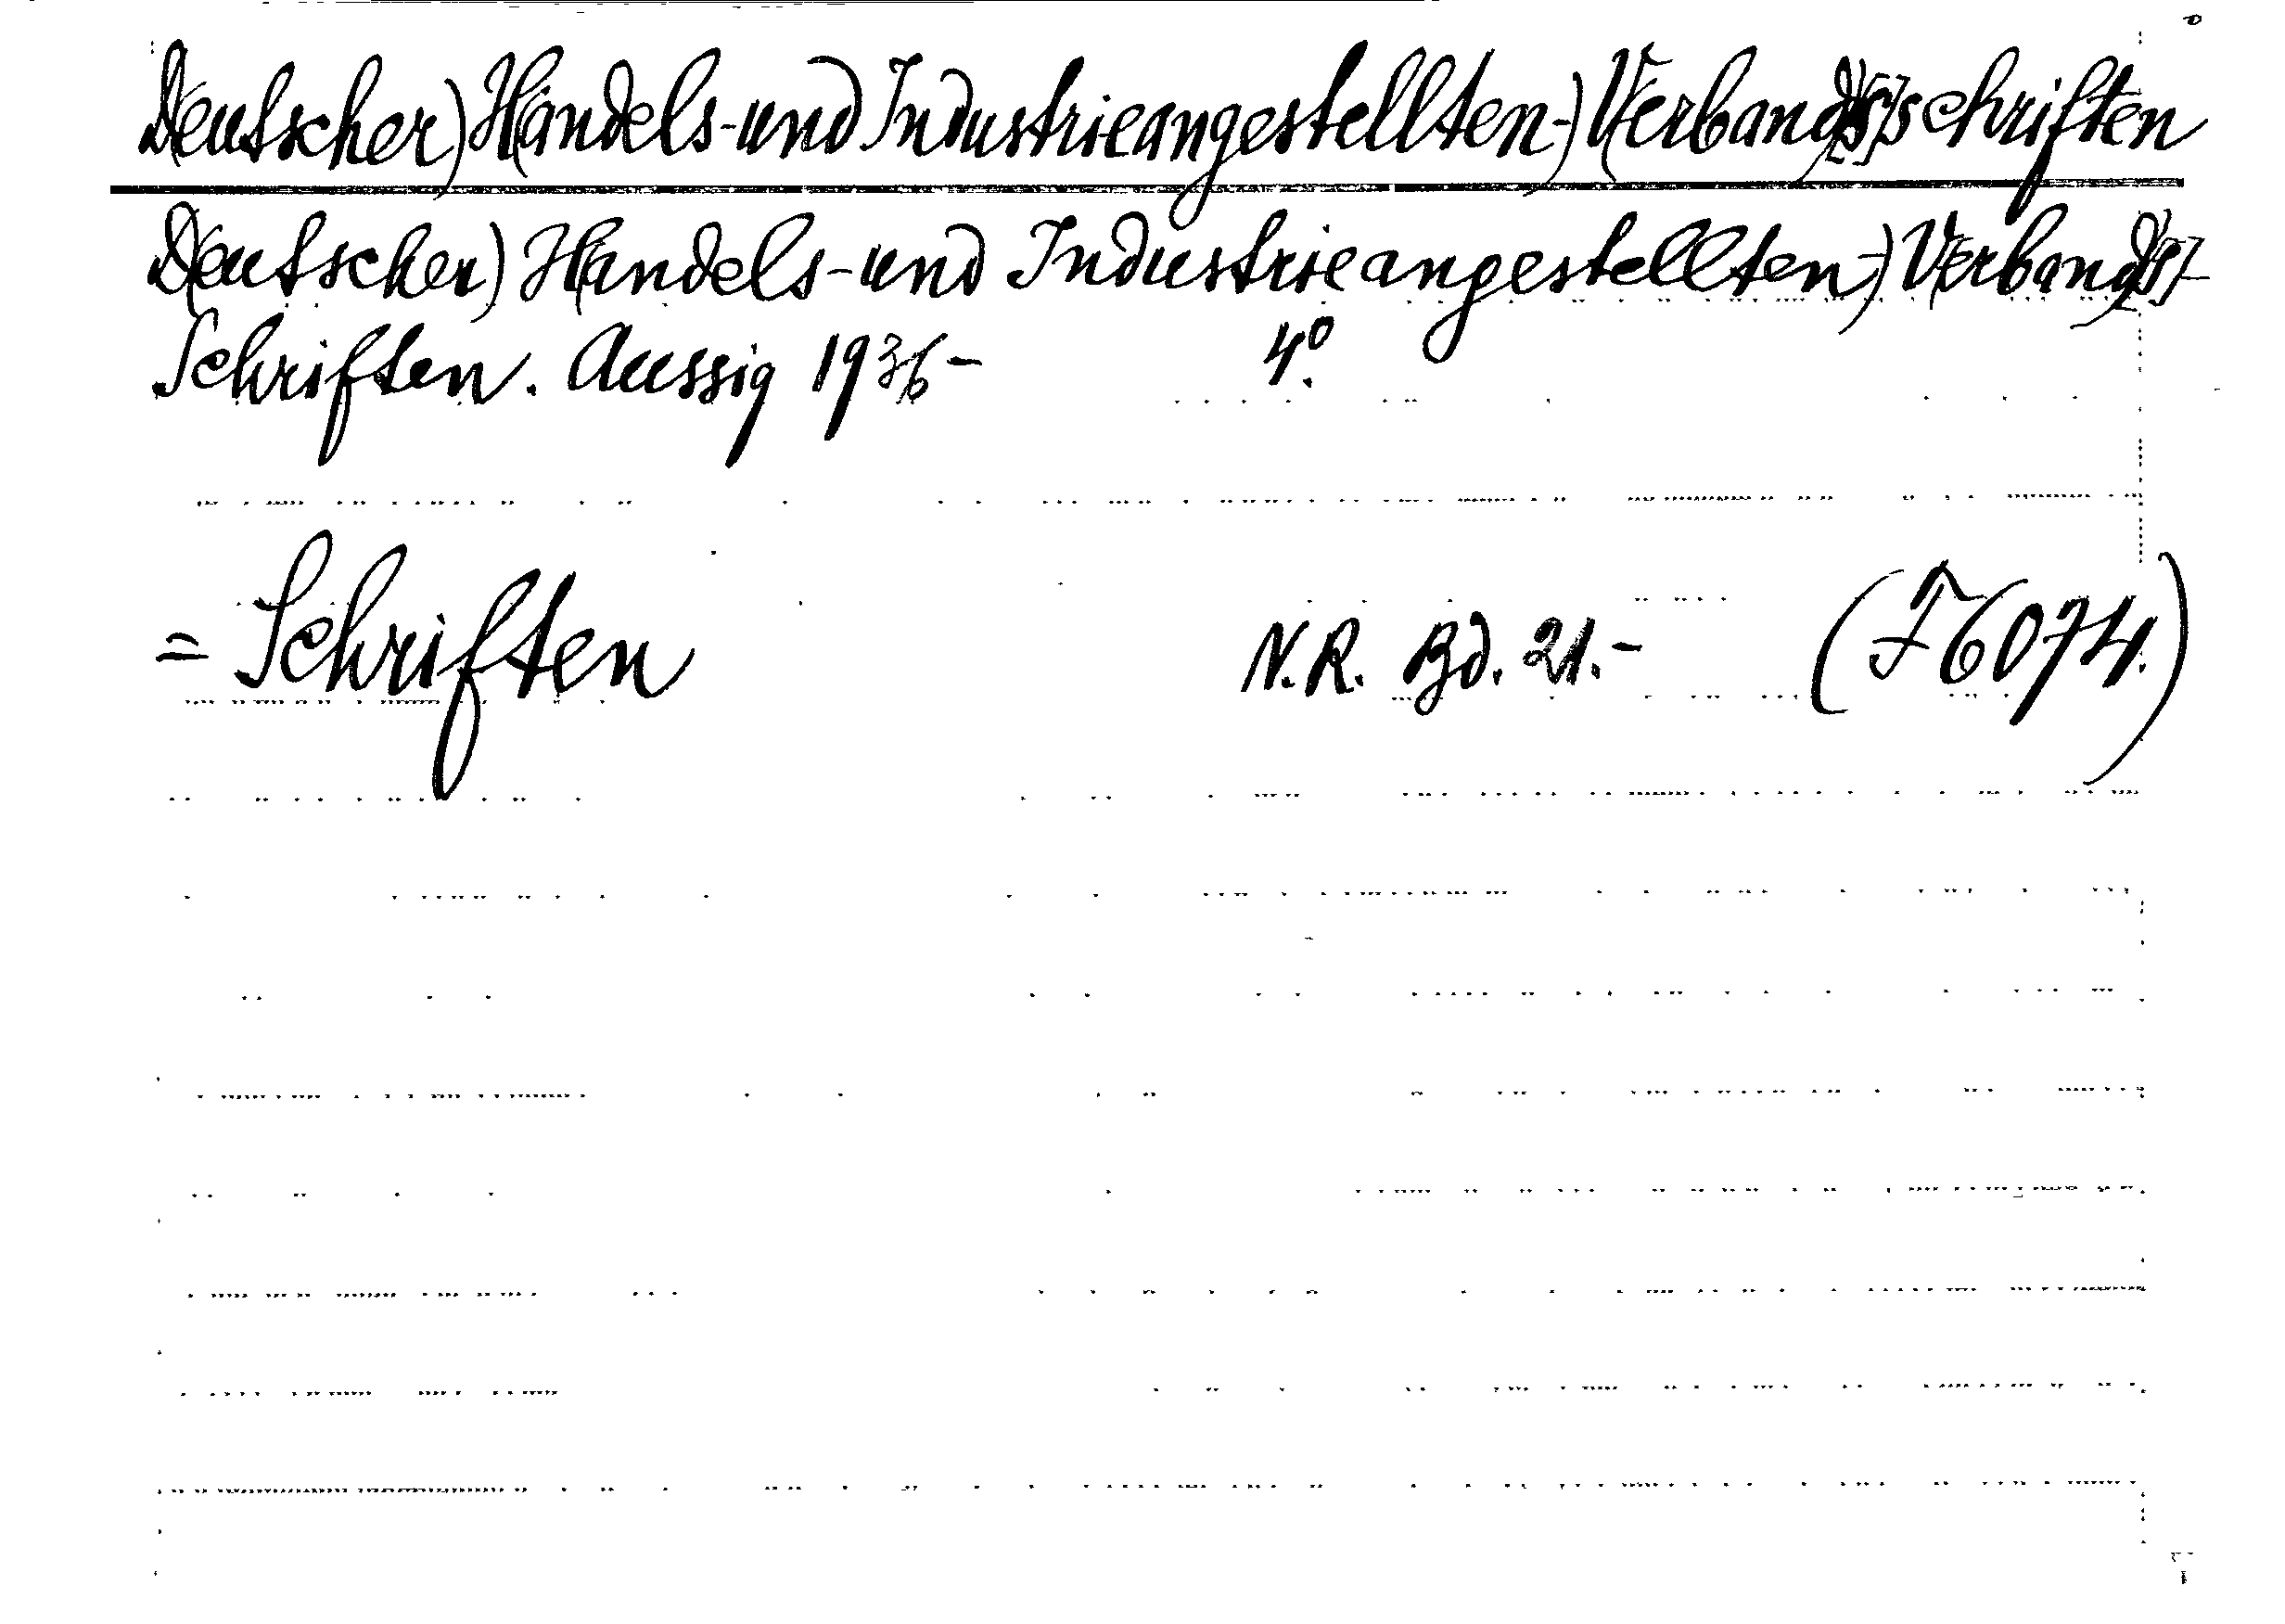 D(eutscher) H(andels- und Industrieangestellten-) V(erband)[s]schriften
D(eutscher) H(andels- und Industrieangestellten-) V(erband)[s]-
Schriften. Aussig 1936- 4°.
= Schriften N.R. Bd. 21.- (F6074.)